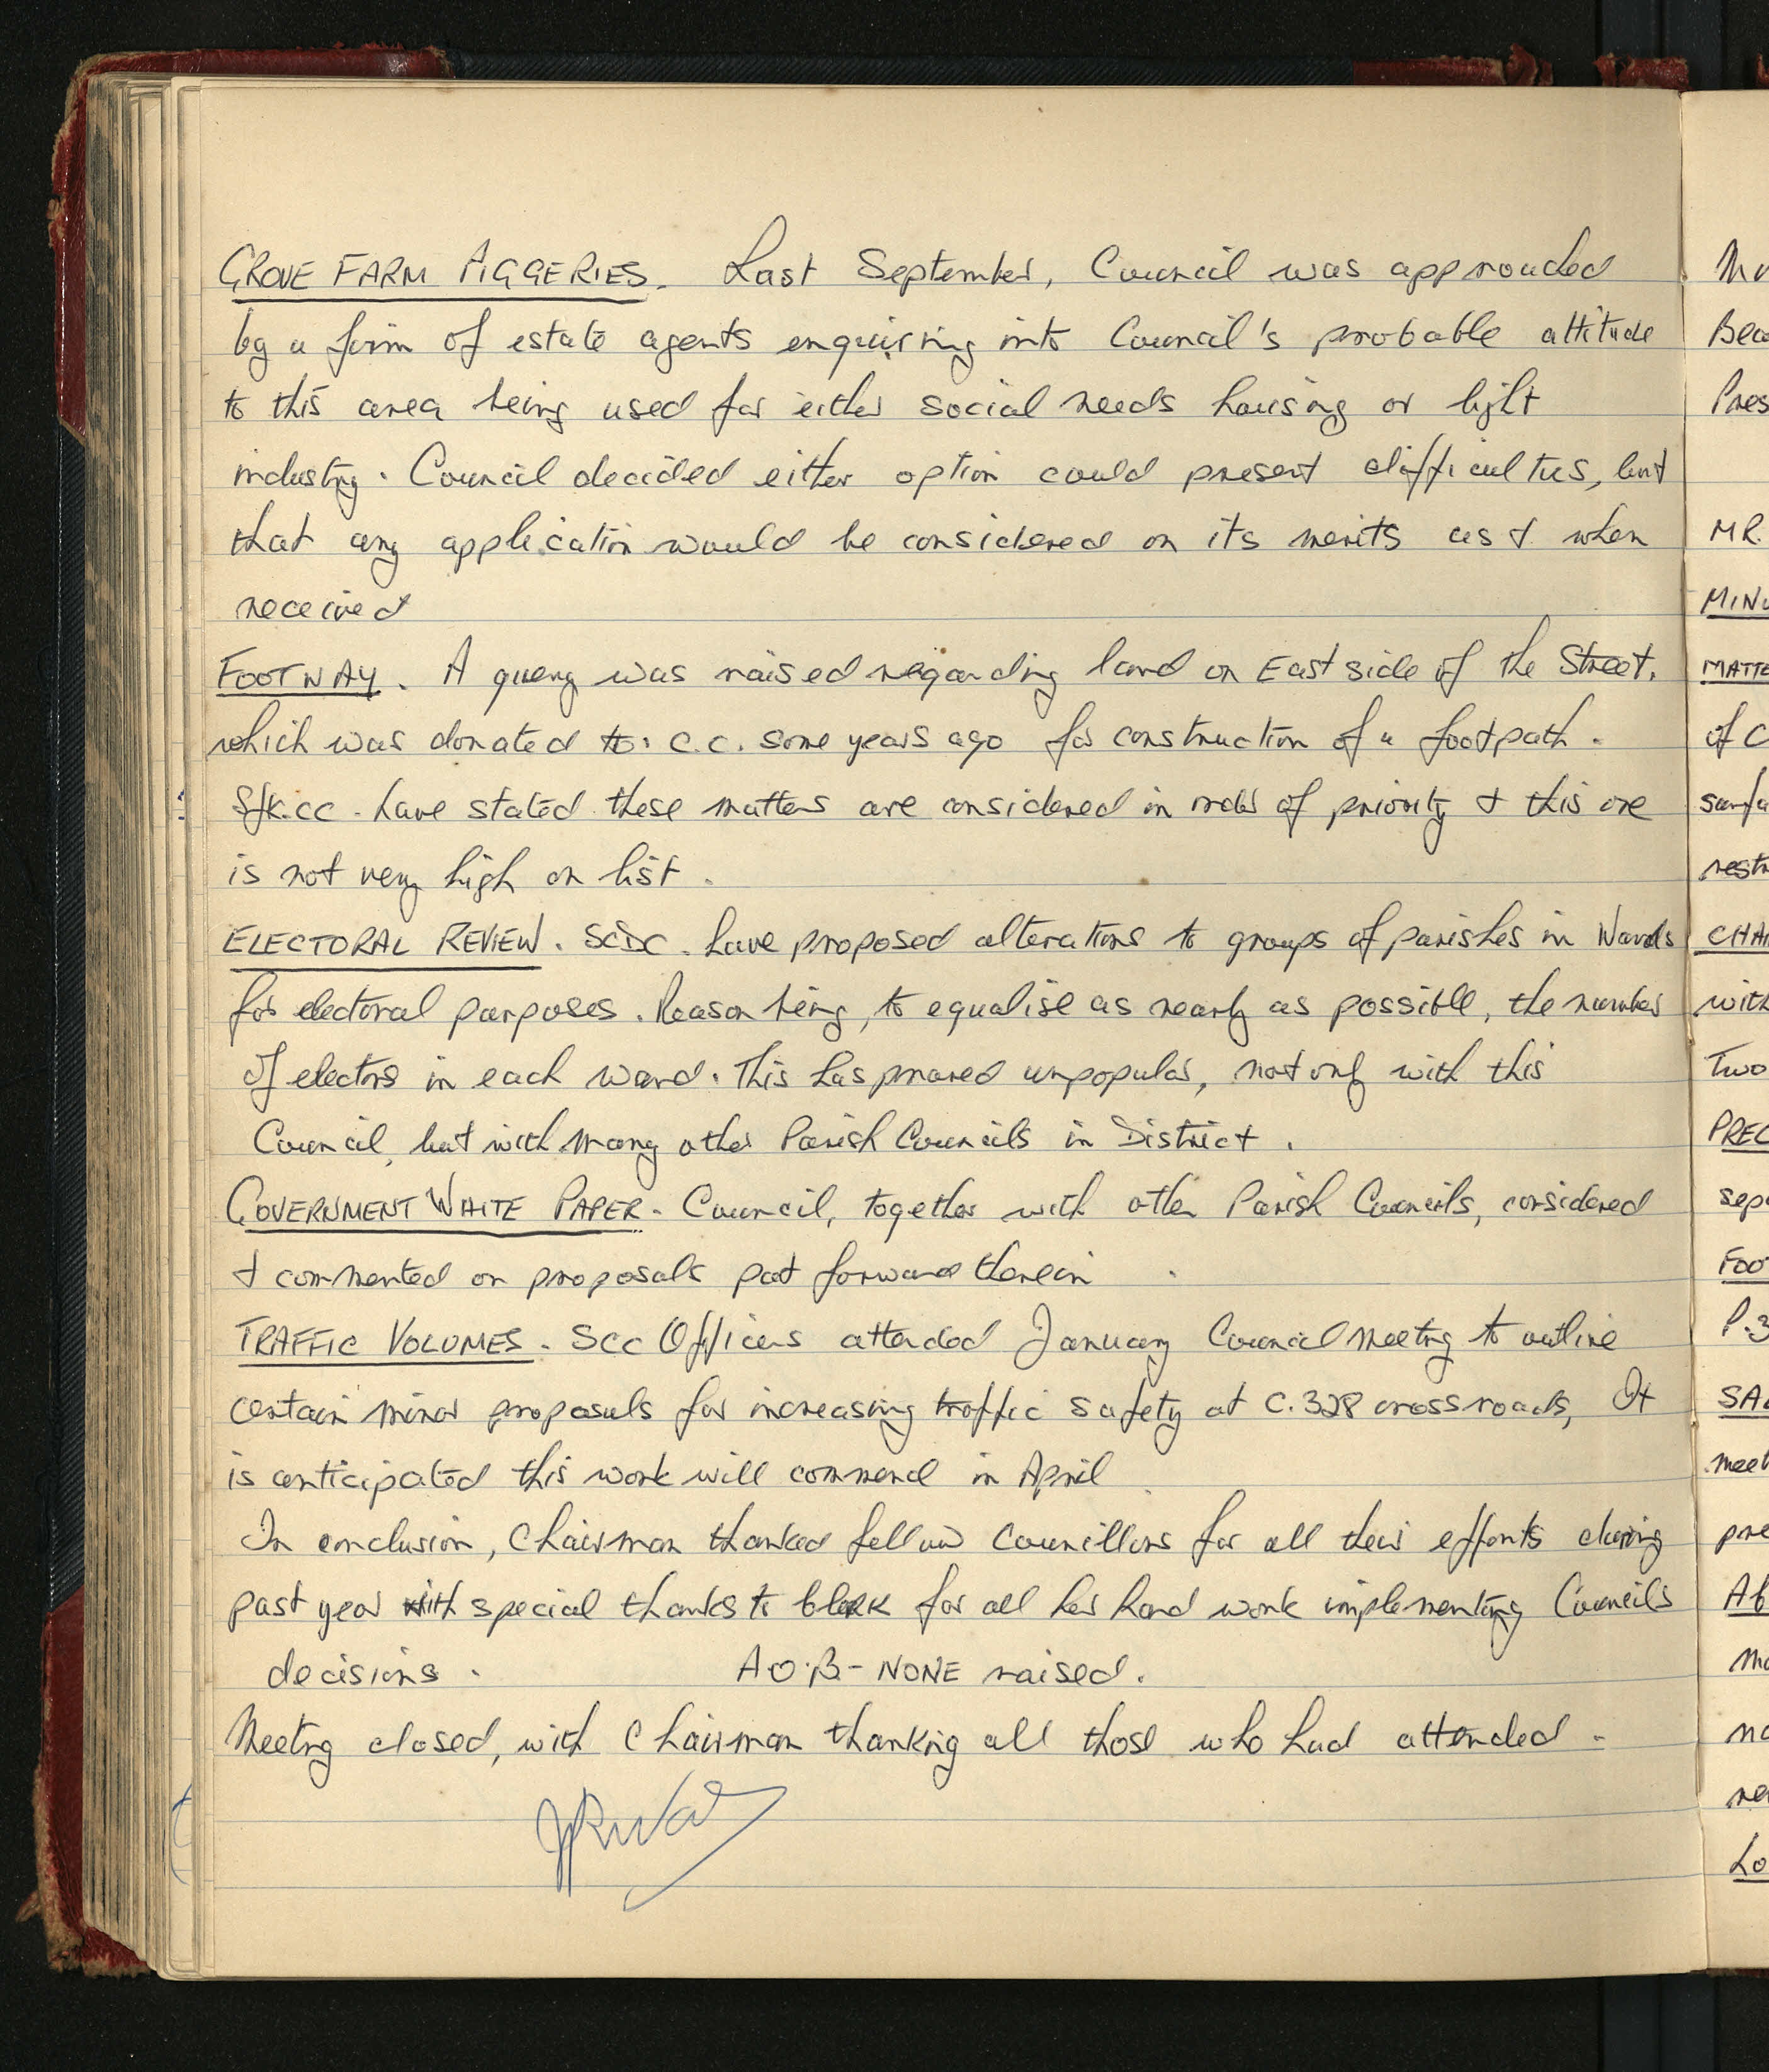 GROVE FARM PIGGERIES. Last September, Council was approached
by a firm of estate agents enquiring into Council's probable attitude
to this area being used for either social needs housing or light
industry. Council decided either option could present difficulties, but
that any application would be considered on its merits as & when
received
FOOTWAY. A query was raised regarding land on East side of the Street,
which was donated to C.C. some years ago for construction of a footpath.
Sfk.CC. have stated these matters are considered in order of priority & this one
is not very high on list.
ELECTORAL REVIEW. SCDC. have proposed alterations to groups of parishes in Wards
for electoral purposes. Reason being, to equalise as nearly as possible, the number
of electors in each ward. This has proved unpopular, not only with this
Council, but with many other Parish Councils in District.
GOVERNMENT WHITE PAPER - Council, together with other Parish Councils, considered
& commented on proposals put forward therein.
TRAFFIC VOLUMES - SCC Officers attended January Council Meeting to outline
certain minor proposals for increasing traffic safety at C.328 crossroads, It
is anticipated this work will commence in April
In conclusion, Chairman thanked fellow Councillors for all their efforts during
past year with special thanks to Clerk for all her hard work implementing Councils
decisions. A.O.B - NONE raised.
Meeting closed, with Chairman thanking all those who had attended.
MR.
of C
with
Two